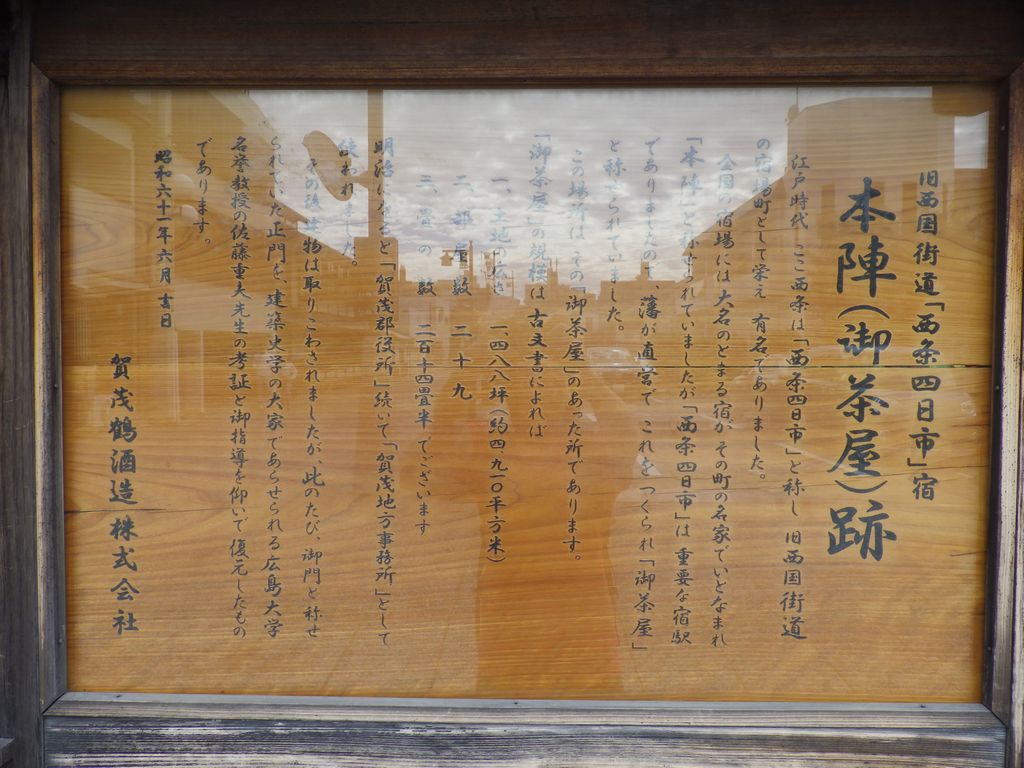 旧西国街道「西条四日市」宿
本陣(御茶屋)跡
江戸時代 ここ西条は「西条四日市」と称し 旧西国街道
の宿場町として栄え 有名でありました。
全国の宿場には大名のとまる宿が、その町の名家でいとなまれ
「本陣」と称せられていましたが「西条四日市」は重要な宿駅
でありましたので、藩が直営で これをつくられ「御茶屋」
と称せられていました。
この場所は その「御茶屋」のあった所であります。
「御茶屋」の規模は古文書によれば
一、土地の広さ 一、四八八坪(約四、九一〇平方米)
二、部屋数 二十九
三、畳の数 二百十四畳半 でございます
明治になると「賀茂郡役所」続いて「賀茂地方事務所」として
使われました。
その後建物は取りこわされましたが、此のたび、御門と称せ
られていた正門を、建築史学の大家であらせられる広島大学
名誉教授の佐藤重夫先生の考証と御指導を仰いで復元したもの
であります。
昭和六十一年六月吉日
賀茂鶴酒造株式会社